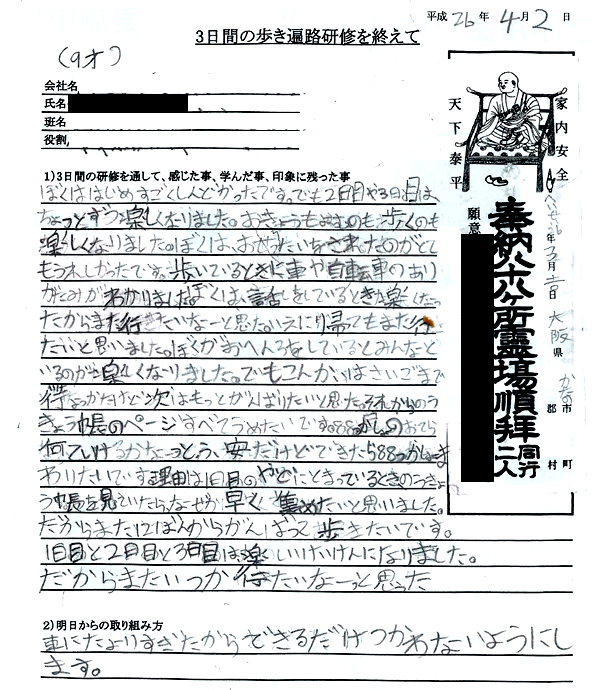 平成26年4月2日
3日間の歩き遍路研修を終えて
(9才)
会社名
氏名
班名
役割
1)3日間の研修を通して、感じた事、学んだ事、印象に残った事
ぼくははじめすごくしんどかったです。でも2日目や3日目は、
ちょっとずつ楽しくなりました。おきょうもよむのも、歩くのも
楽しくなりました。ぼくは、おせったいをされたのがとて
もうれしかったです。歩いているときに車や自転車のあり
がたみがわかりました。ぼくは、話しをしているとき楽しかっ
たからまた行きたいなーと思た。いえに帰てもまた行
たいと思いました。ぼくがおへんろをしているとみんなと
いるのが楽しくなりました。でもこんかいはさいごまで
行なかたけど次はもっとがんばりたいと思た。それからのう
きょう帳のページすべてうめたいです。88かしょのおてら
何ていけるかなーっと
わりたいです理由は1日目のやどにとまっているときのうきょ
う帳を見ていたらなぜか早く集めたいと思いました。
だからまた12ばんからがんばって歩きたいです。
1日目と2日目と3日目は楽しいけいけんになりました。
だからまたいつか行たいなーっと思った
2)明日からの取り組み方
車にたよりすぎたからできるだけつかわないようにし
ます。
家内安全
天下泰平
奉納八十八ヶ所霊場順拝
同行二人
願意
年3月
日
大阪県
市
郡
町
村